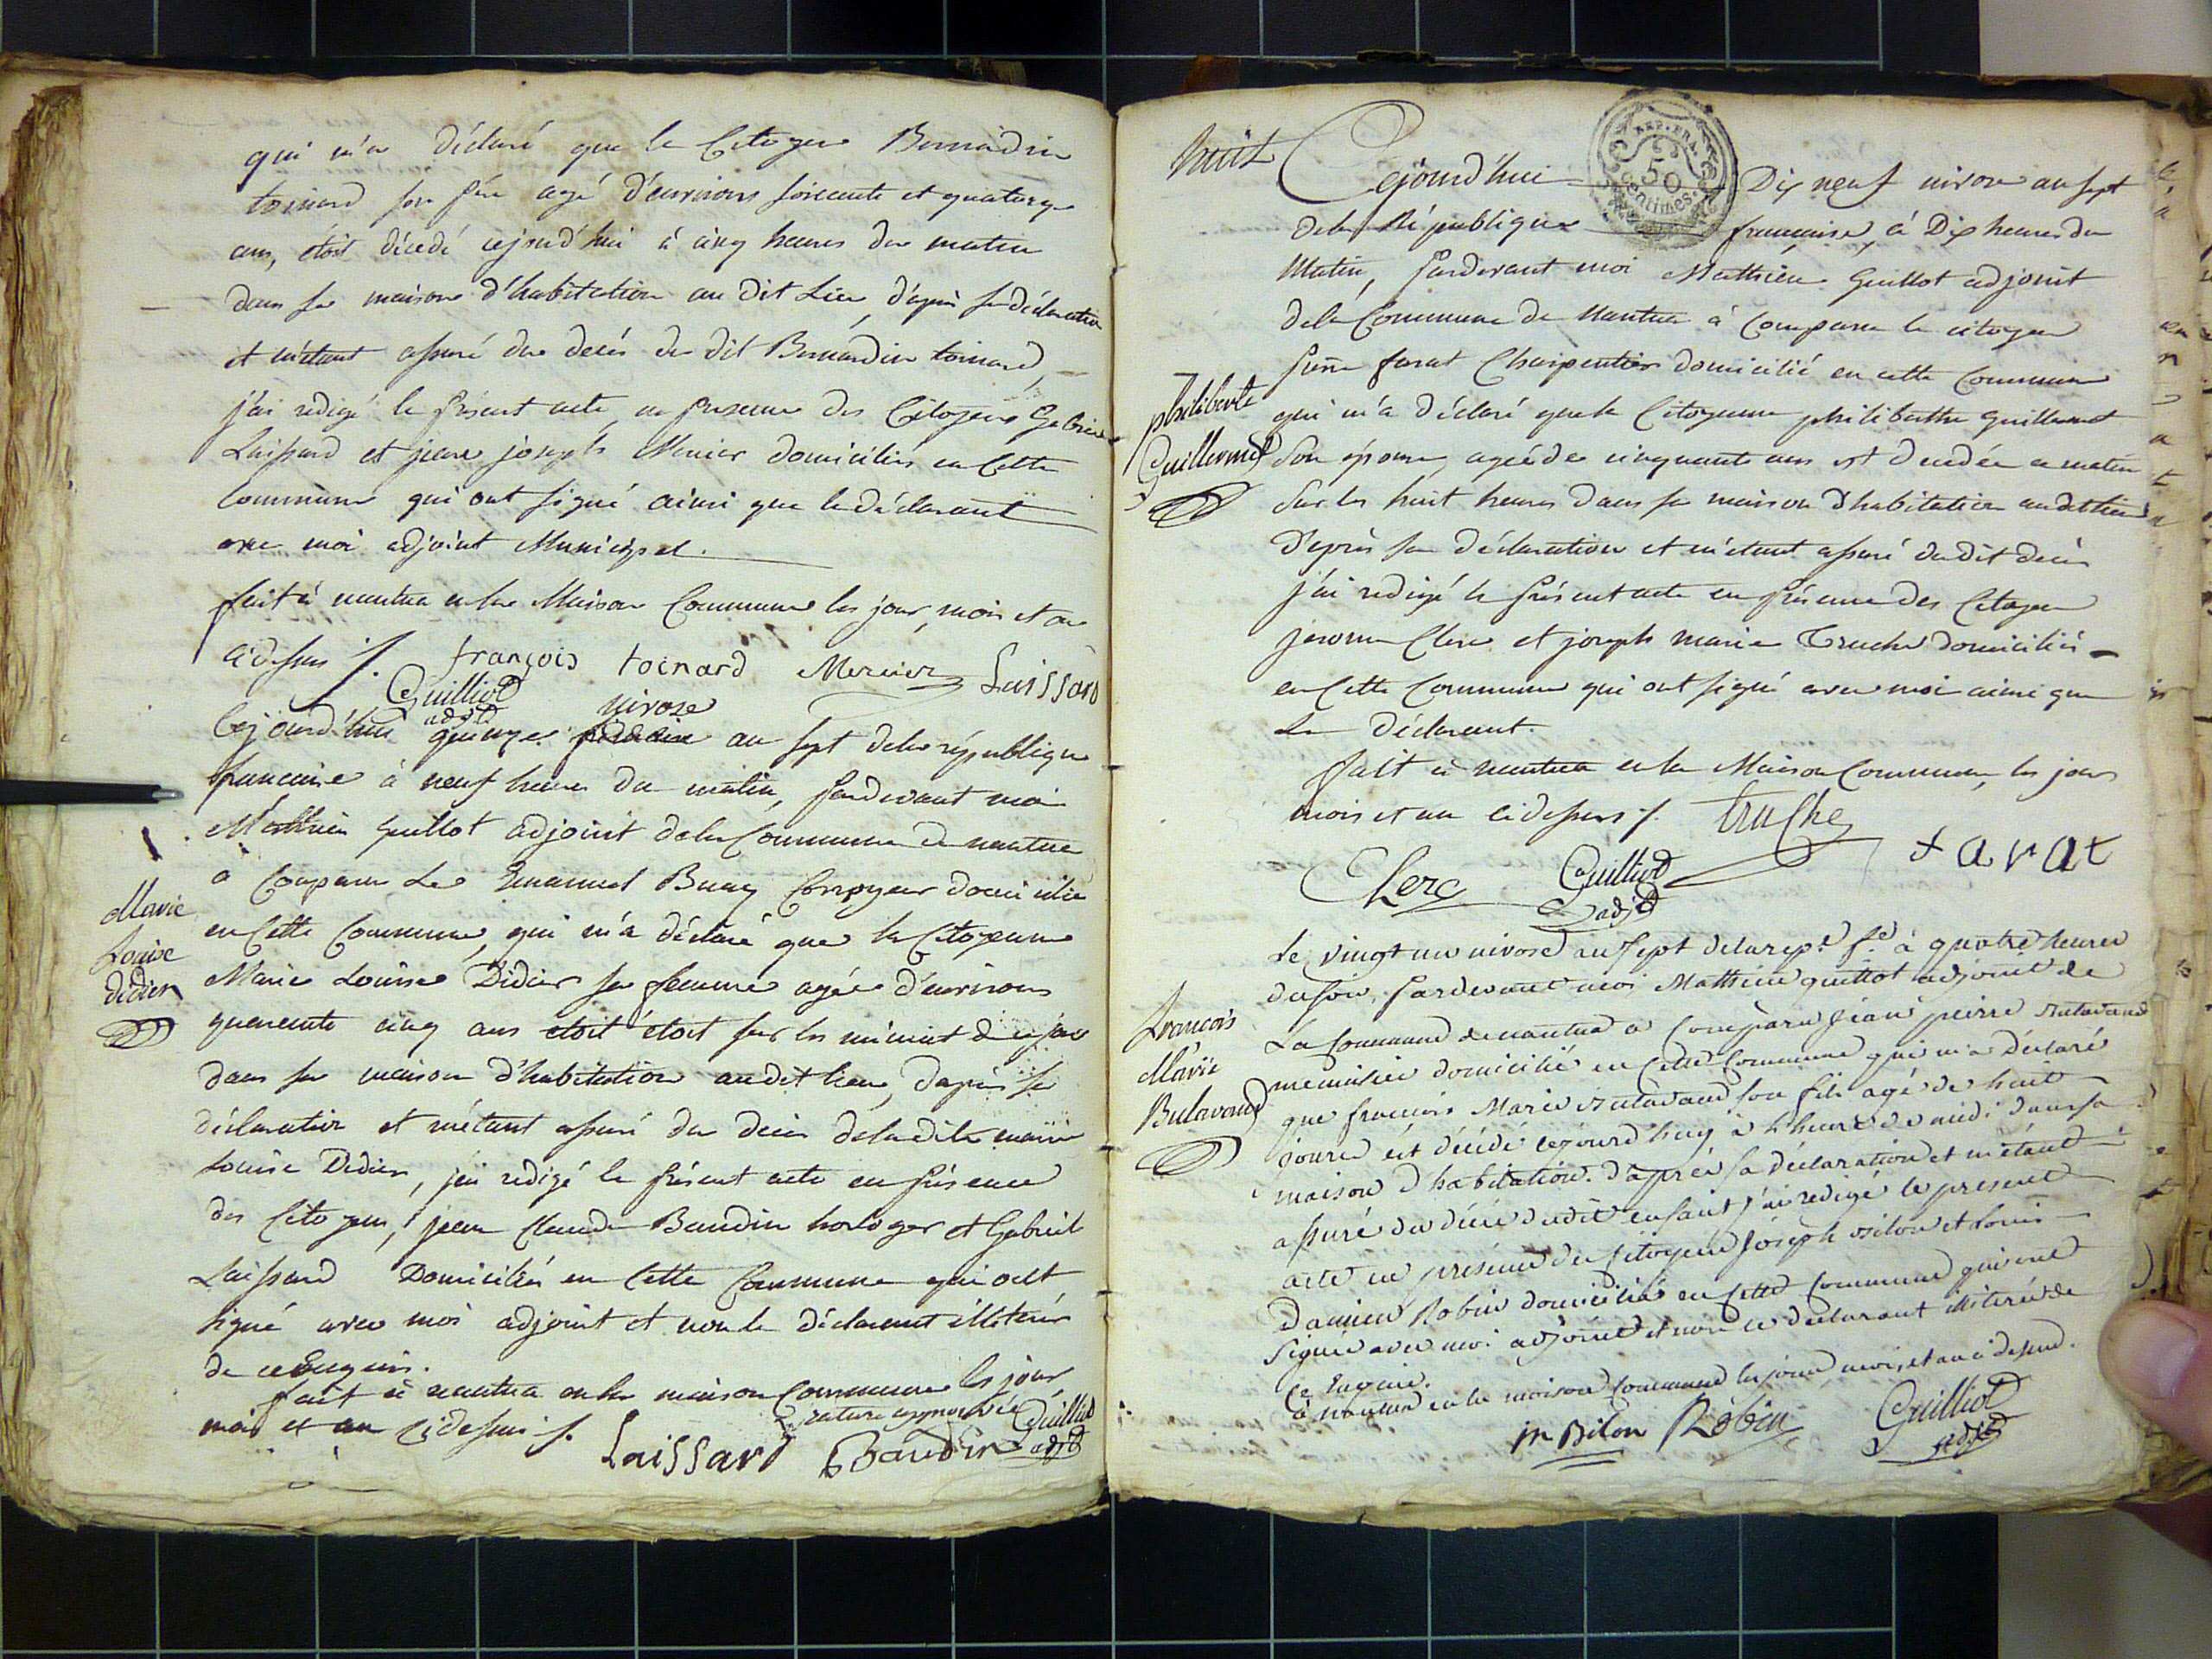 qui m'a déclaré que le Citoyen Bernardin
toinard son pére agé d'environs soixante et quatorze
ans, étoit décedé cejourd'hui à cinq heures du matin
dans sa maison d'habitation au dit Lieu, d'après sa déclaration
et m'étant assuré du decés du dit Bernardin toinard,
j'ai redigé le présent acte en presence des Citoyens Gabriel
Laissard et jean joseph Mercier domiciliés en Cette
Commune qui ont signé ainsi que le déclarant
avec moi adjoint Municipal.
fait à nantua en la Maison Commune les jour, mois et an
cidessus ./. françois toinard Mercier Laissard
Guilliot adjt nivose
Cejourd'hui quinze an sept de la république
francaise à neuf heures du matin, pardevant moi
Mathieu Guillot adjoint de la Commune de nantua
a Comparu Le Emanuel Buay Corroyeur domicilié
en Cette Commune, qui m'a déclaré que la Citoyenne
Marie Louise Didier sa femme agée d'environs
quarente cinq ans etoit étoit sur les minuit
dans sa maison d'habitation audit lieu, d'après sa
déclaration et m'étant assuré du decès de la dite marie
Louise Didier, j'ai redigé le présent acte en présence
des Citoyens, jean Claude Baudin horloger et Gabriel
Laissard Domiciliés en Cette Commune qui ont
signé avec moi adjoint et non le déclarant illiteré
de ce Enquis.
fait à nantua en la maison Commune les jour
mois et an cidessus ./. rature approuvée
Laissard Baudin Guilliot adjt
Marie
Louise
didier
huit
REP. FRA.
50
Centimes
Cejourd'hui Dix neuf nivose an sept
de la République française, à Dix heures du
Matin, pardevant moi Mathieu Guillot adjoint
de la Commune de Nantua à Comparu le citoyen
farat Charpentier domicilié en cette Commune
qui m'a déclaré que la Citoyenne philiberthe Guillermet
Son épouse, agée de cinquante ans est decedée ce matin
Sur les huit heures dans sa maison d'habitation audit lieu
D'après sa déclaration et m'étant assuré dudit decès
j'ai redigé le présent acte en présence des Citoyen
jerome Clerc et joseph marie Truche domiciliés
en Cette Commune qui ont signé avec moi ainsi que
Le Déclarant.
fait à nantua en la Maison Commune, les jour
mois et an cidessus ./. truche
Clerc Guilliot adjt farat
philiberte
Guillermet
Le vingt un nivose an sept de la rep.e f.e à quatre heures
du soir, pardevant moi Mathieu guillot adjoint de
La Commune de nantua a Comparu jean pierre Butavand
menuisier domicilié en Cette Commune qui m'a Déclaré
que francois Marie Butavand son fils agé de huit
jours est décédé cejourd'huy à l'heure de midi dans sa
maison d'habitation. d'après sa déclaration et m'étant
assuré du décès dudit enfant j'ai redigé le present
acte en présence des Citoyens Joseph Bilon et Louis
Damien Robin domiciliés en Cette Commune qui ont
signé avec moi adjoint et non le déclarant illiteré de
Ce Enquis.
à nantua en la maison Commune les jour, mois, et an cidessus.
Bilon Robin Guilliot adjt
francois
Marie
Butavand